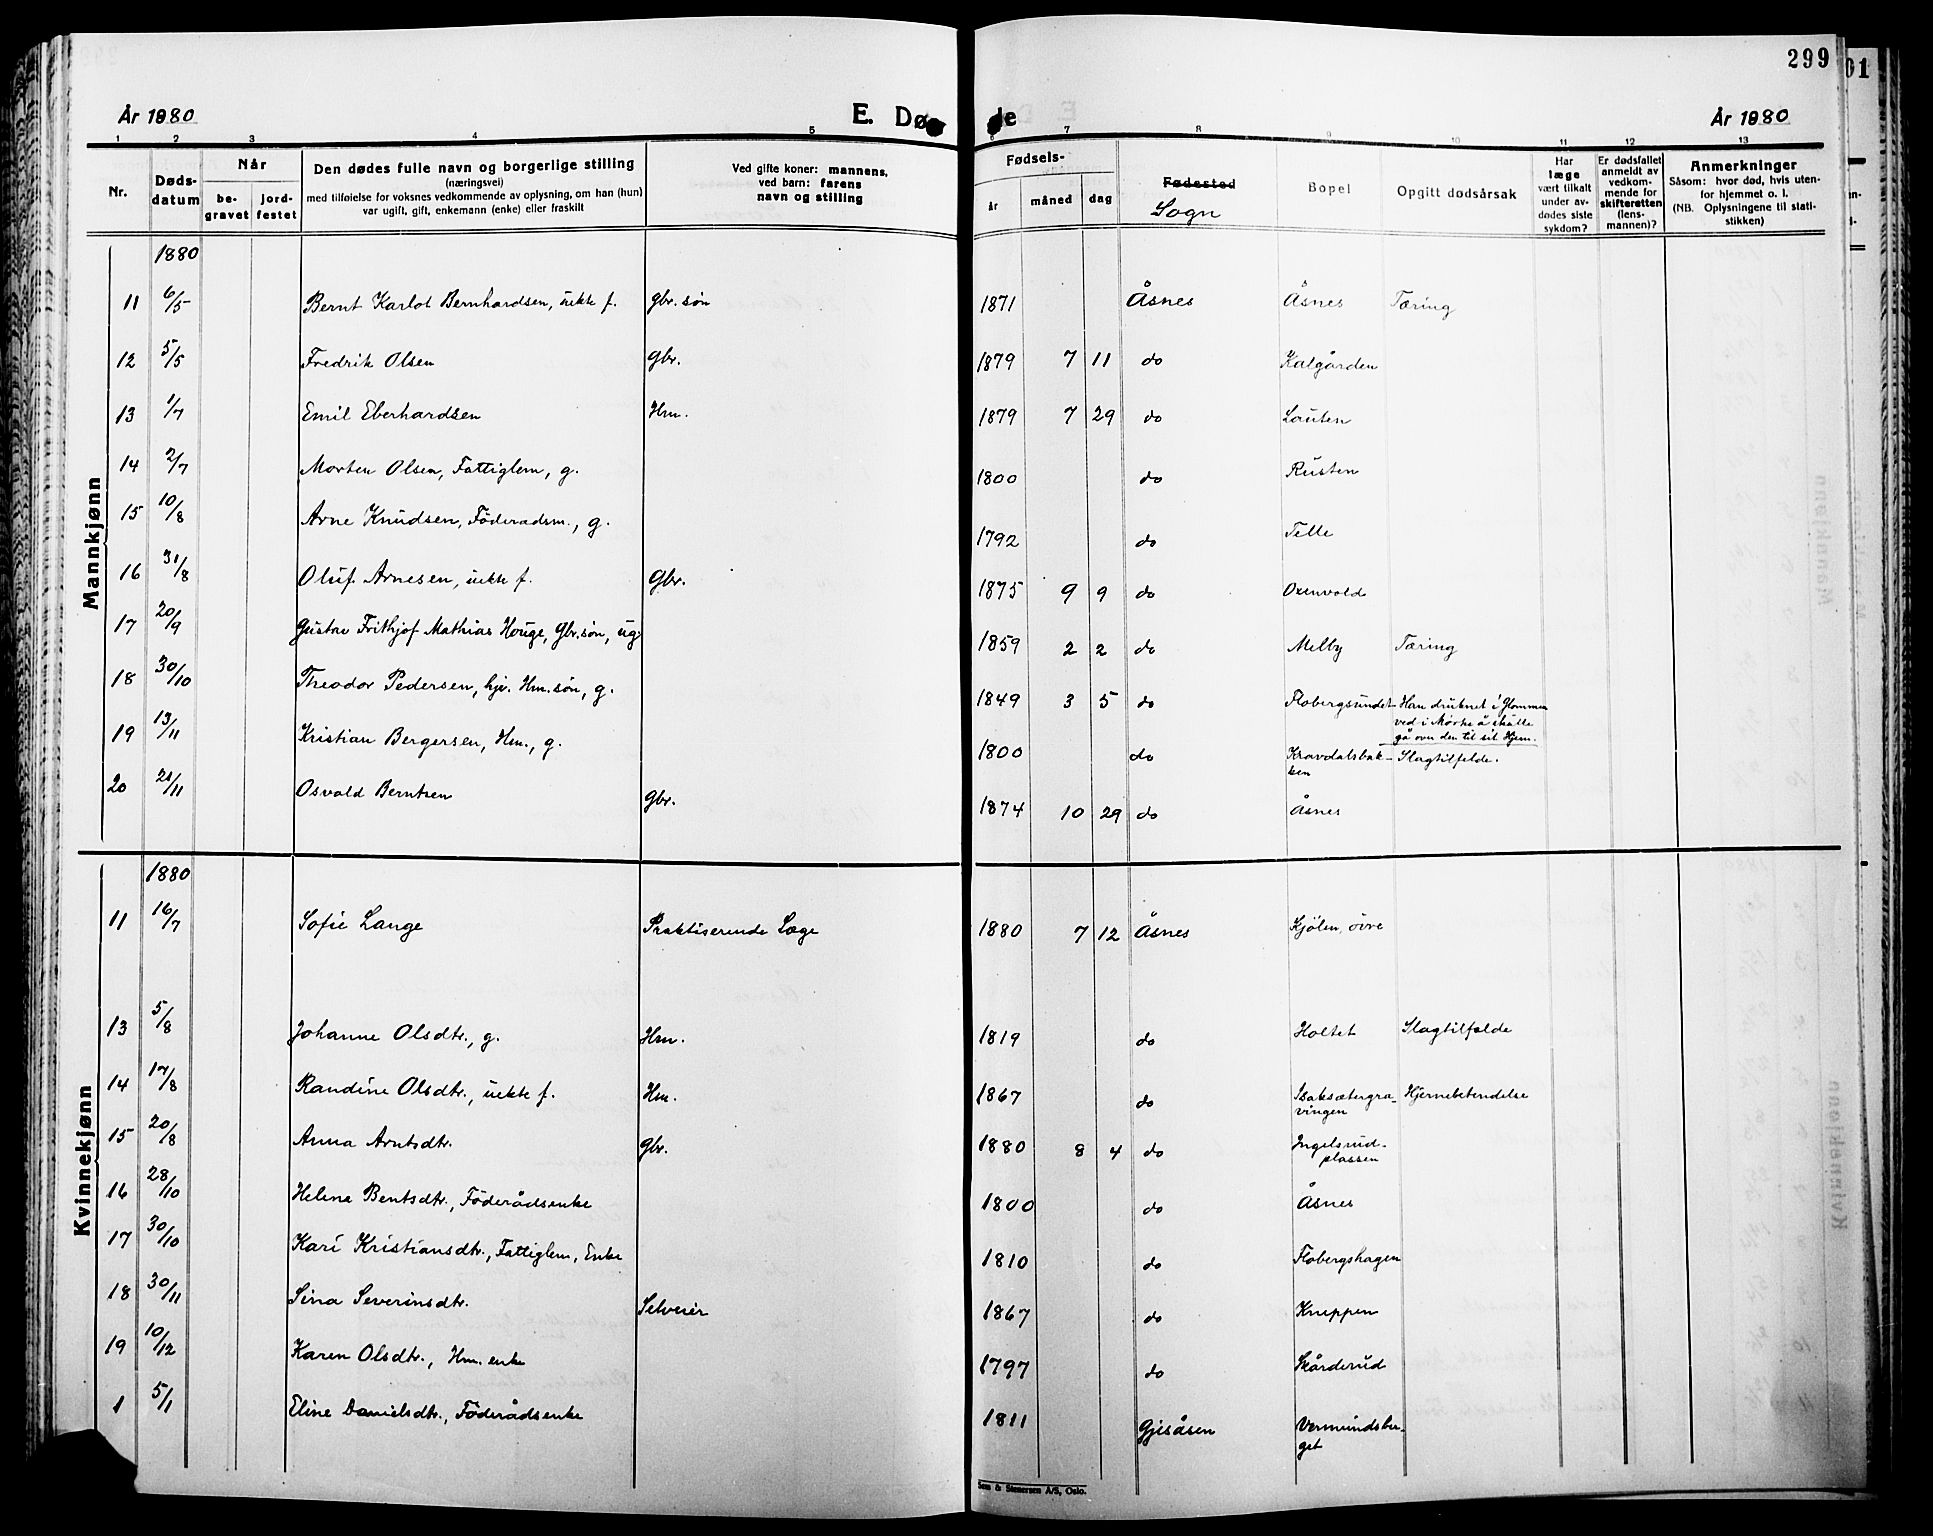 299
01
År 1880
E. Dø
de
År 1880
1 2 3 4 5 6 7 8 9 10 11 12 13
Nr.
Døds-
datum
Når
be-
gravet
jord-
festet
Den dødes fulle navn og borgerlige stilling
(næringsvei)
med tilføielse for voksnes vedkommende av oplysning, om han (hun)
var ugift, gift, enkemann (enke) eller fraskilt
Ved gifte koner: mannens,
ved barn: farens
navn og stilling
Fødsels-
år
måned
dag
Fødested
Sogn
Bopel
Opgitt dødsårsak
Har
læge
vært tilkalt
under av-
dødes siste
sykdom?
Er dødsfallet
anmeldt av
vedkom-
mende for
skifteretten
(lens-
mannen)?
Anmerkninger
Såsom: hvor død, hvis uten-
for hjemmet o. l.
(NB. Oplysningene til stati-
stikken)
Mannkjønn
1880
11 6/5 Bernt Karlot Bernhardsen, uekte f. Gbr. søn 1871 Åsnes Åsnes Tæring
12 5/5 Fredrik Olsen Gbr. 1879 7 11 do Kalgården
13 1/7 Emil Eberhardsen Hm. 1879 7 29 do Lauten
14 2/7 Morten Olsen, Fattiglem, g. 1800 do Rusten
15 10/8 Arne Knudsen, Föderadsm., g. 1792 do Telle
16 31/8 Oluf Arnesen, uekte f. Gbr. 1875 9 9 do Oxenvold
17 20/9 Gustav Frithjof Mathias Houge, Gbr. søn, ug 1859 2 2 do Melby Tæring
18 30/10 Theodor Pedersen, hjv. Hm. søn, g. 1849 3 5 do Flobergsundet Han druknet i Glommen
ved i Mørke å skulle
gå over den til sit Hjem.
19 13/11 Kristian Bergersen, Hm., g. 1800 do Kravdalsbak-
ken Slagtilfelde.
20 21/11 Osvald Berntsen Gbr. 1874 10 29 do Åsnes
Kvinnekjønn
1880
11 16/7 Sofie Lange Praktiserende Læge 1880 7 12 Åsnes Kjölen, övre
13 5/8 Johanne Olsdtr., g. Hm. 1819 do Holtet Slagtilfælde
14 17/8 Randine Olsdtr., uekte f. Hm. 1867 do Isaksætergra-
vingen Hjernebetendelse
15 20/8 Anna Arntsdtr. Gbr. 1880 8 4 do Ingelsrud-
plassen
16 28/10 Helene Bentsdtr., Föderådsenke 1800 do Åsnes
17 30/10 Kari Kristiansdtr., Fattiglem, Enke 1810 do Flobergshagen
18 30/11 Sina Severinsdtr. Selveier 1867 do Knuppen
19 10/12 Karen Olsdtr., Hm. enke 1797 do Skårderud
1 5/1 Eline Danielsdtr., Föderådsenke 1811 Gjesåsen Vermundsber-
get
Sem & Stenersen A/S, Oslo.